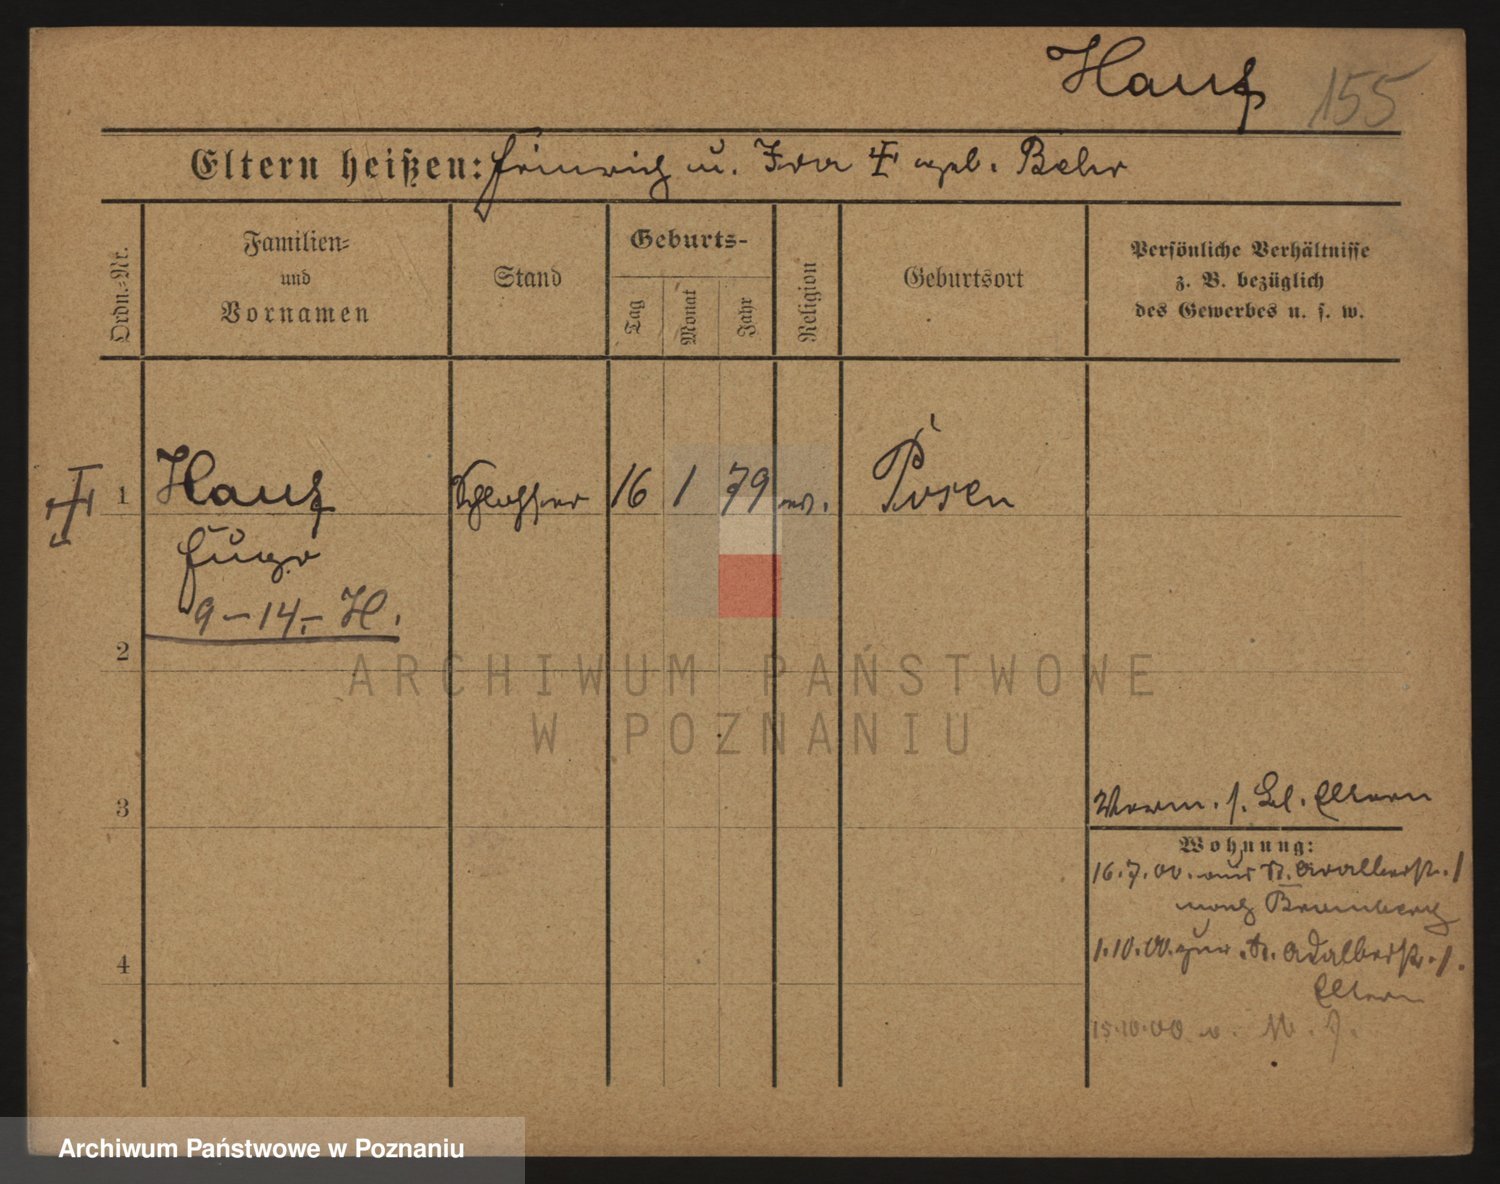 Hauf 155
Eltern heißen: Heinrich u. Ida geb. Behr
Ordn.-Nr.
Familien-
und
Vornamen
Stand
Geburts-
Tag
Monat
Jahr
Religion
Geburtsort
Persönliche Verhältnisse
z. B. bezüglich
des Gewerbes u. s. w.
1 Hauf Schlosser 16 1 79 ev. Posen
Hugo
9-14.- H.
2
ARCHIWUM PAŃSTWOWE
W POZNANIU
3
Verm. s. Bl. Eltern
Wohnung:
16.7.00. aus St. Adalbertstr. 1
nach Bromberg
4
1.10.00. zur. St. Adalbertstr. 1.
Eltern
15.10.00 v.
Archiwum Państwowe w Poznaniu